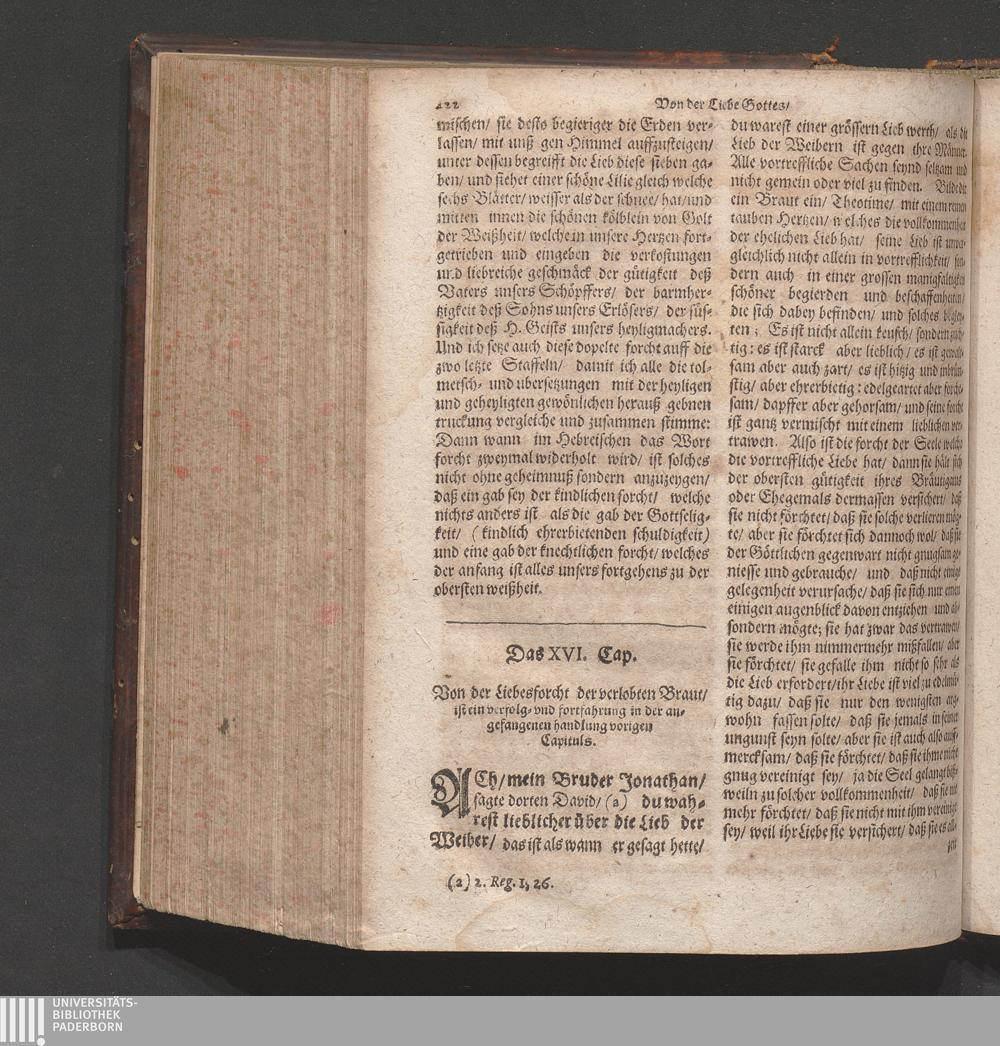 422
Von der Liebe Gottes/
mischen/ sie desto begieriger die Erden ver-
lassen/ mit unß gen Himmel auffzusteigen/
unter dessen begreifft die Lieb diese sieben ga-
ben/ und siehet einer schöne Lilie gleich welche
sechs Blätter/ weisser als der schnee/ hat/ und
mitten innen die schönen kölblein von Golt
der Weißheit/ welche in unsere Hertzen fort-
getrieben und eingeben die verkostungen
und liebreiche geschmäck der gütigkeit deß
Vaters unsers Schöpffers/ der barmher-
tzigkeit deß Sohns unsers Erlösers/ der süs-
sigkeit deß H. Geists unsers heyligmachers.
Und ich setze auch diese dopelte forcht auff die
zwo letzte Staffeln/ damit ich alle die tol-
metsch- und ubersetzungen mit der heyligen
und geheyligten gewönlichen herauß gebnen
truckung vergleiche und zusammen stimme:
Dann wann im Hebreischen das Wort
forcht zweymal widerholt wird/ ist solches
nicht ohne geheimnuß sondern anzuzeygen/
daß ein gab sey der kindlichen forcht/ welche
nichts anders ist als die gab der Gottselig-
keit/ (kindlich ehrerbietenden schuldigkeit)
und eine gab der knechtlichen forcht/ welches
der anfang ist alles unsers fortgehens zu der
obersten weißheit.
Das XVI. Cap.
Von der Liebesforcht der verlobten Braut/
ist ein verfolg- vnd fortfahrung in der an-
gefangenen handlung vorigen
Capituls.
ACh/ mein Bruder Jonathan/
sagte dorten David/ (a) du wah-
rest lieblicher über die Lieb der
Weiber/ das ist als wann er gesagt hette/
(a) 2. Reg. 1, 26.
du warest einer grössern Lieb werth/ als die
Lieb der Weibern ist gegen ihre Männer.
Alle vortreffliche Sachen seynd seltzam und
nicht gemein oder viel zu finden. Bilde dir
ein Braut ein/ Theotime/ mit einem reinen
tauben Hertzen/ welches die vollkommenheit
der ehelichen Lieb hat/ seine Lieb ist unver-
gleichlich nicht allein in vortrefflichkeit/ son-
dern auch in einer grossen manigfaltigkeit
schöner begierden und beschaffenheiten/
die sich dabey befinden/ und solches begley-
ten; Es ist nicht allein keusch/ sondern züch-
tig: es ist starck aber lieblich/ es ist gewalt-
sam aber auch zart/ es ist hitzig und inbrün-
stig/ aber ehrerbietig: edelgeartet aber forcht-
sam/ dapffer aber gehorsam/ und seine forcht
ist gantz vermischt mit einem lieblichen ver-
trawen. Also ist die forcht der Seele welche
die vortreffliche Liebe hat/ dann sie hält sich
der obersten gütigkeit ihres Bräutigams
oder Ehegemals dermassen versichert/ daß
sie nicht förchtet/ daß sie solche verlieren mög-
te/ aber sie förchtet sich dannoch wol/ daß sie
der Göttlichen gegenwart nicht gnugsam ge-
niesse und gebrauche/ und daß nicht einige
gelegenheit verursache/ daß sie sich nur einen
einigen augenblick davon entziehen und ab-
sondern mögte; sie hat zwar das vertrawen/
sie werde ihm nimmermehr mißfallen/ aber
sie förchtet/ sie gefalle ihm nicht so sehr als
die Lieb erfordert/ ihr Liebe ist viel zu edelmü-
tig dazu/ daß sie nur den wenigsten arg-
wohn fassen solte/ daß sie jemals in seiner
ungunst seyn solte/ aber sie ist auch also auff-
mercksam/ daß sie förchtet/ daß sie ihme nicht
gnug vereinigt sey/ ja die Seel gelangt biß-
weiln zu solcher vollkommenheit/ daß sie nit
mehr förchtet/ daß sie nicht mit ihm vereinigt
sey/ weil ihr Liebe sie versichert/ daß sie es all-
zeit
UNIVERSITÄTS-
BIBLIOTHEK
PADERBORN